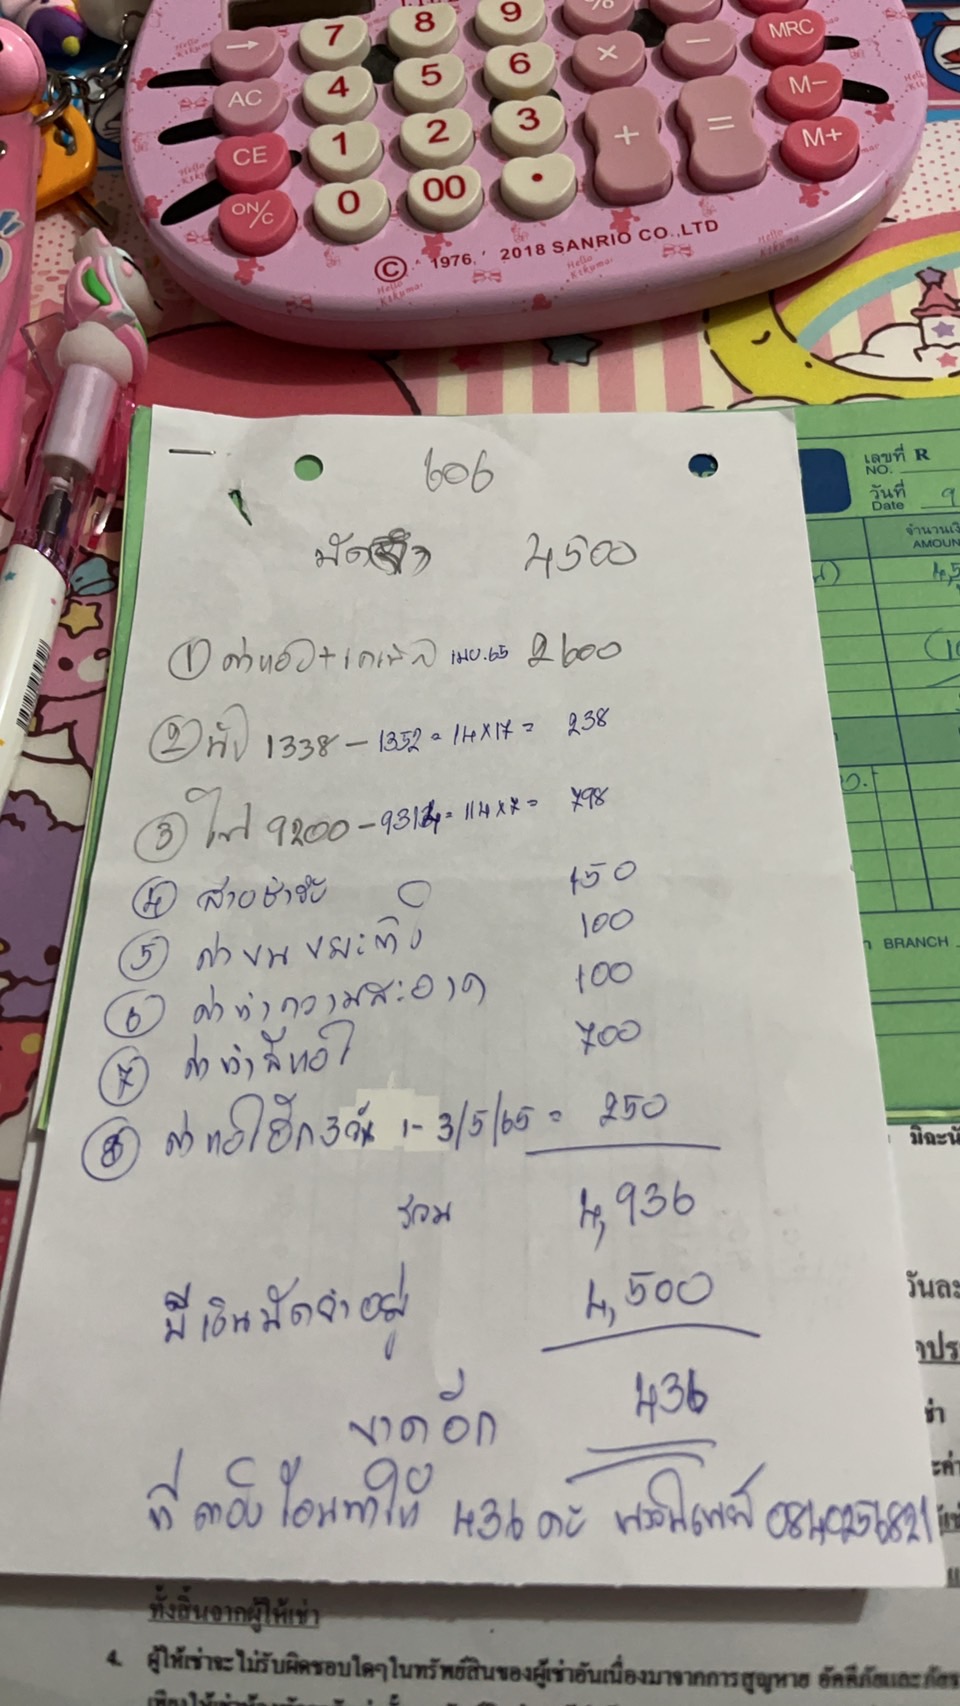 → 7 8 9 % MRC
AC 4 5 6 × − M−
CE 1 2 3 + = M+
ON/C 0 00 •
© 1976, 2018 SANRIO CO.,LTD
เลขที่ R
NO.
วันที่ 9
Date
จำนวนเงิ
AMOUN
4,5
606
มัดจำ 4500
① ค่าห้อง+เคเบิล เมย.65 2600
② น้ำ 1338 - 1352 = 14x17 = 238
③ ไฟ 9200 - 9314 = 114x7 = 798
④ สายชำระ 150
⑤ ค่าขนขยะทิ้ง 100
⑥ ค่าทำความสะอาด 100
⑦ ค่าทำสีห้อง 700
⑧ ค่าห้องอีก 3 วัน 1-3/5/65 = 250
รวม 4,936
มีเงินมัดจำอยู่ 4,500
ขาดอีก 436
ที่ต้องโอนมาให้ 436 ค่ะ พร้อมเพย์ 0840256821
BRANCH
มิฉะนั
วันละ
ทั้งสิ้นจากผู้ให้เช่า
4. ผู้ให้เช่าจะไม่รับผิดชอบใดๆในทรัพย์สินของผู้เช่าอันเนื่องมาจากการสูญหาย อัคคีภัยและภัย